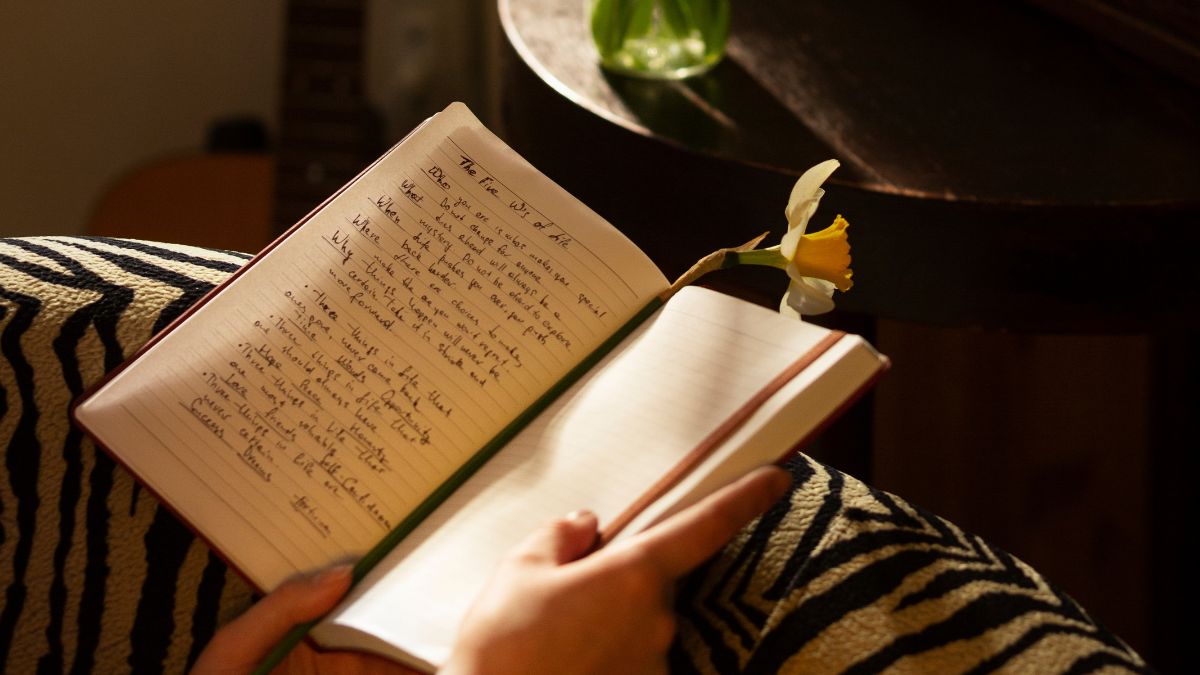 The Five W's of Life
Who you are is what makes you special
Do not change for anyone
What lies ahead will always be a
mystery. Do not be afraid to explore
When life pushes you over, you push
back harder
Where there are choices to make,
make the one you won't regret.
Why things happen will never be
certain. Take it in stride and
move forward.
• Three things in life that
ones gone, never come back
Time Words Opportunity
• Three things in life that
one should always have
Hope Peace Honesty
• Three things in life that
are valuable
Love Friends Self-Confidence
• Three things in life are
never certain.
Success Dreams Fortune